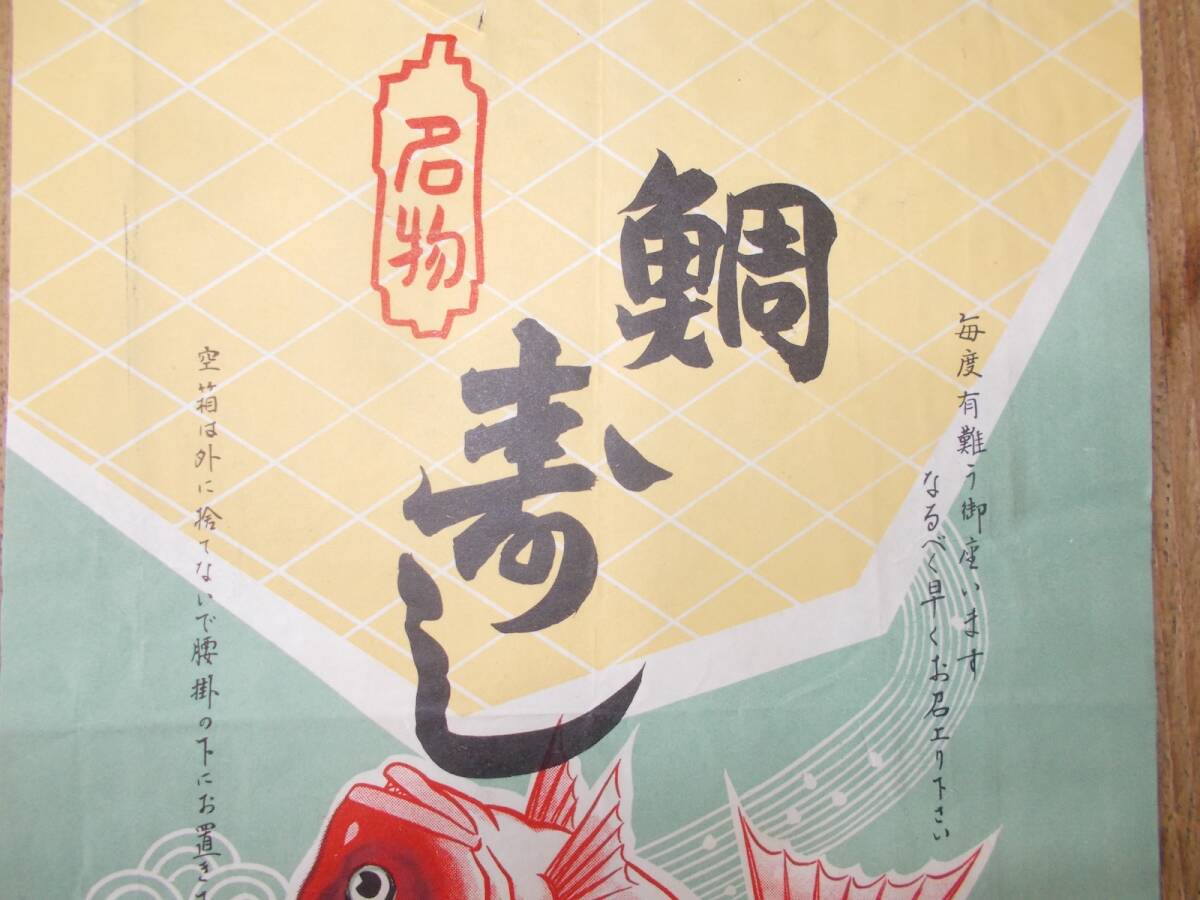 毎度有難う御座います
なるべく早くお召上り下さい
鯛寿し
名物
空箱は外に捨てないで腰掛の下にお置き